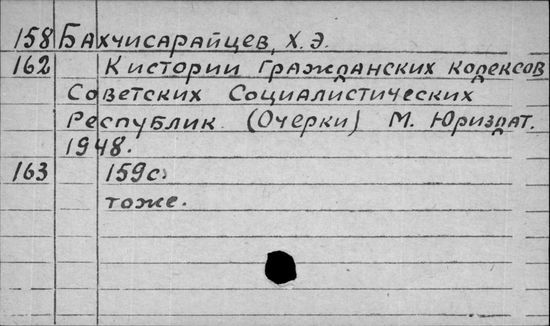 158 Бахчисарайцев, Х.Э.
162 К истории гражданских кодексов
Советских Социалистических
Республик. (Очерки) М. Юриздат.
1948.
163 159с.
тоже.